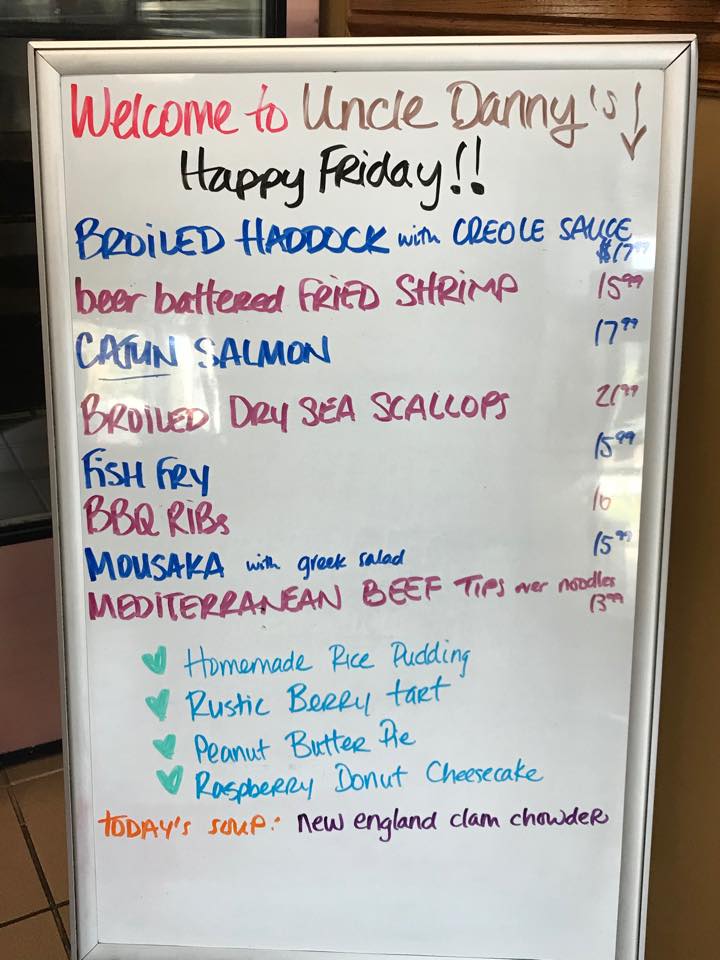 Welcome to Uncle Danny's!
Happy Friday!!
BROILED HADDOCK with CREOLE SAUCE
$17.99
beer battered FRIED SHRIMP 15.99
CAJUN SALMON 17.99
BROILED DRY SEA SCALLOPS 21.99
FISH FRY 15.99
BBQ RIBS 16
MOUSAKA with greek salad 15.99
MEDITERRANEAN BEEF TIPS over noodles
13.99
Homemade Rice Pudding
Rustic Berry tart
Peanut Butter Pie
Raspberry Donut Cheesecake
TODAY'S SOUP: new england clam chowder